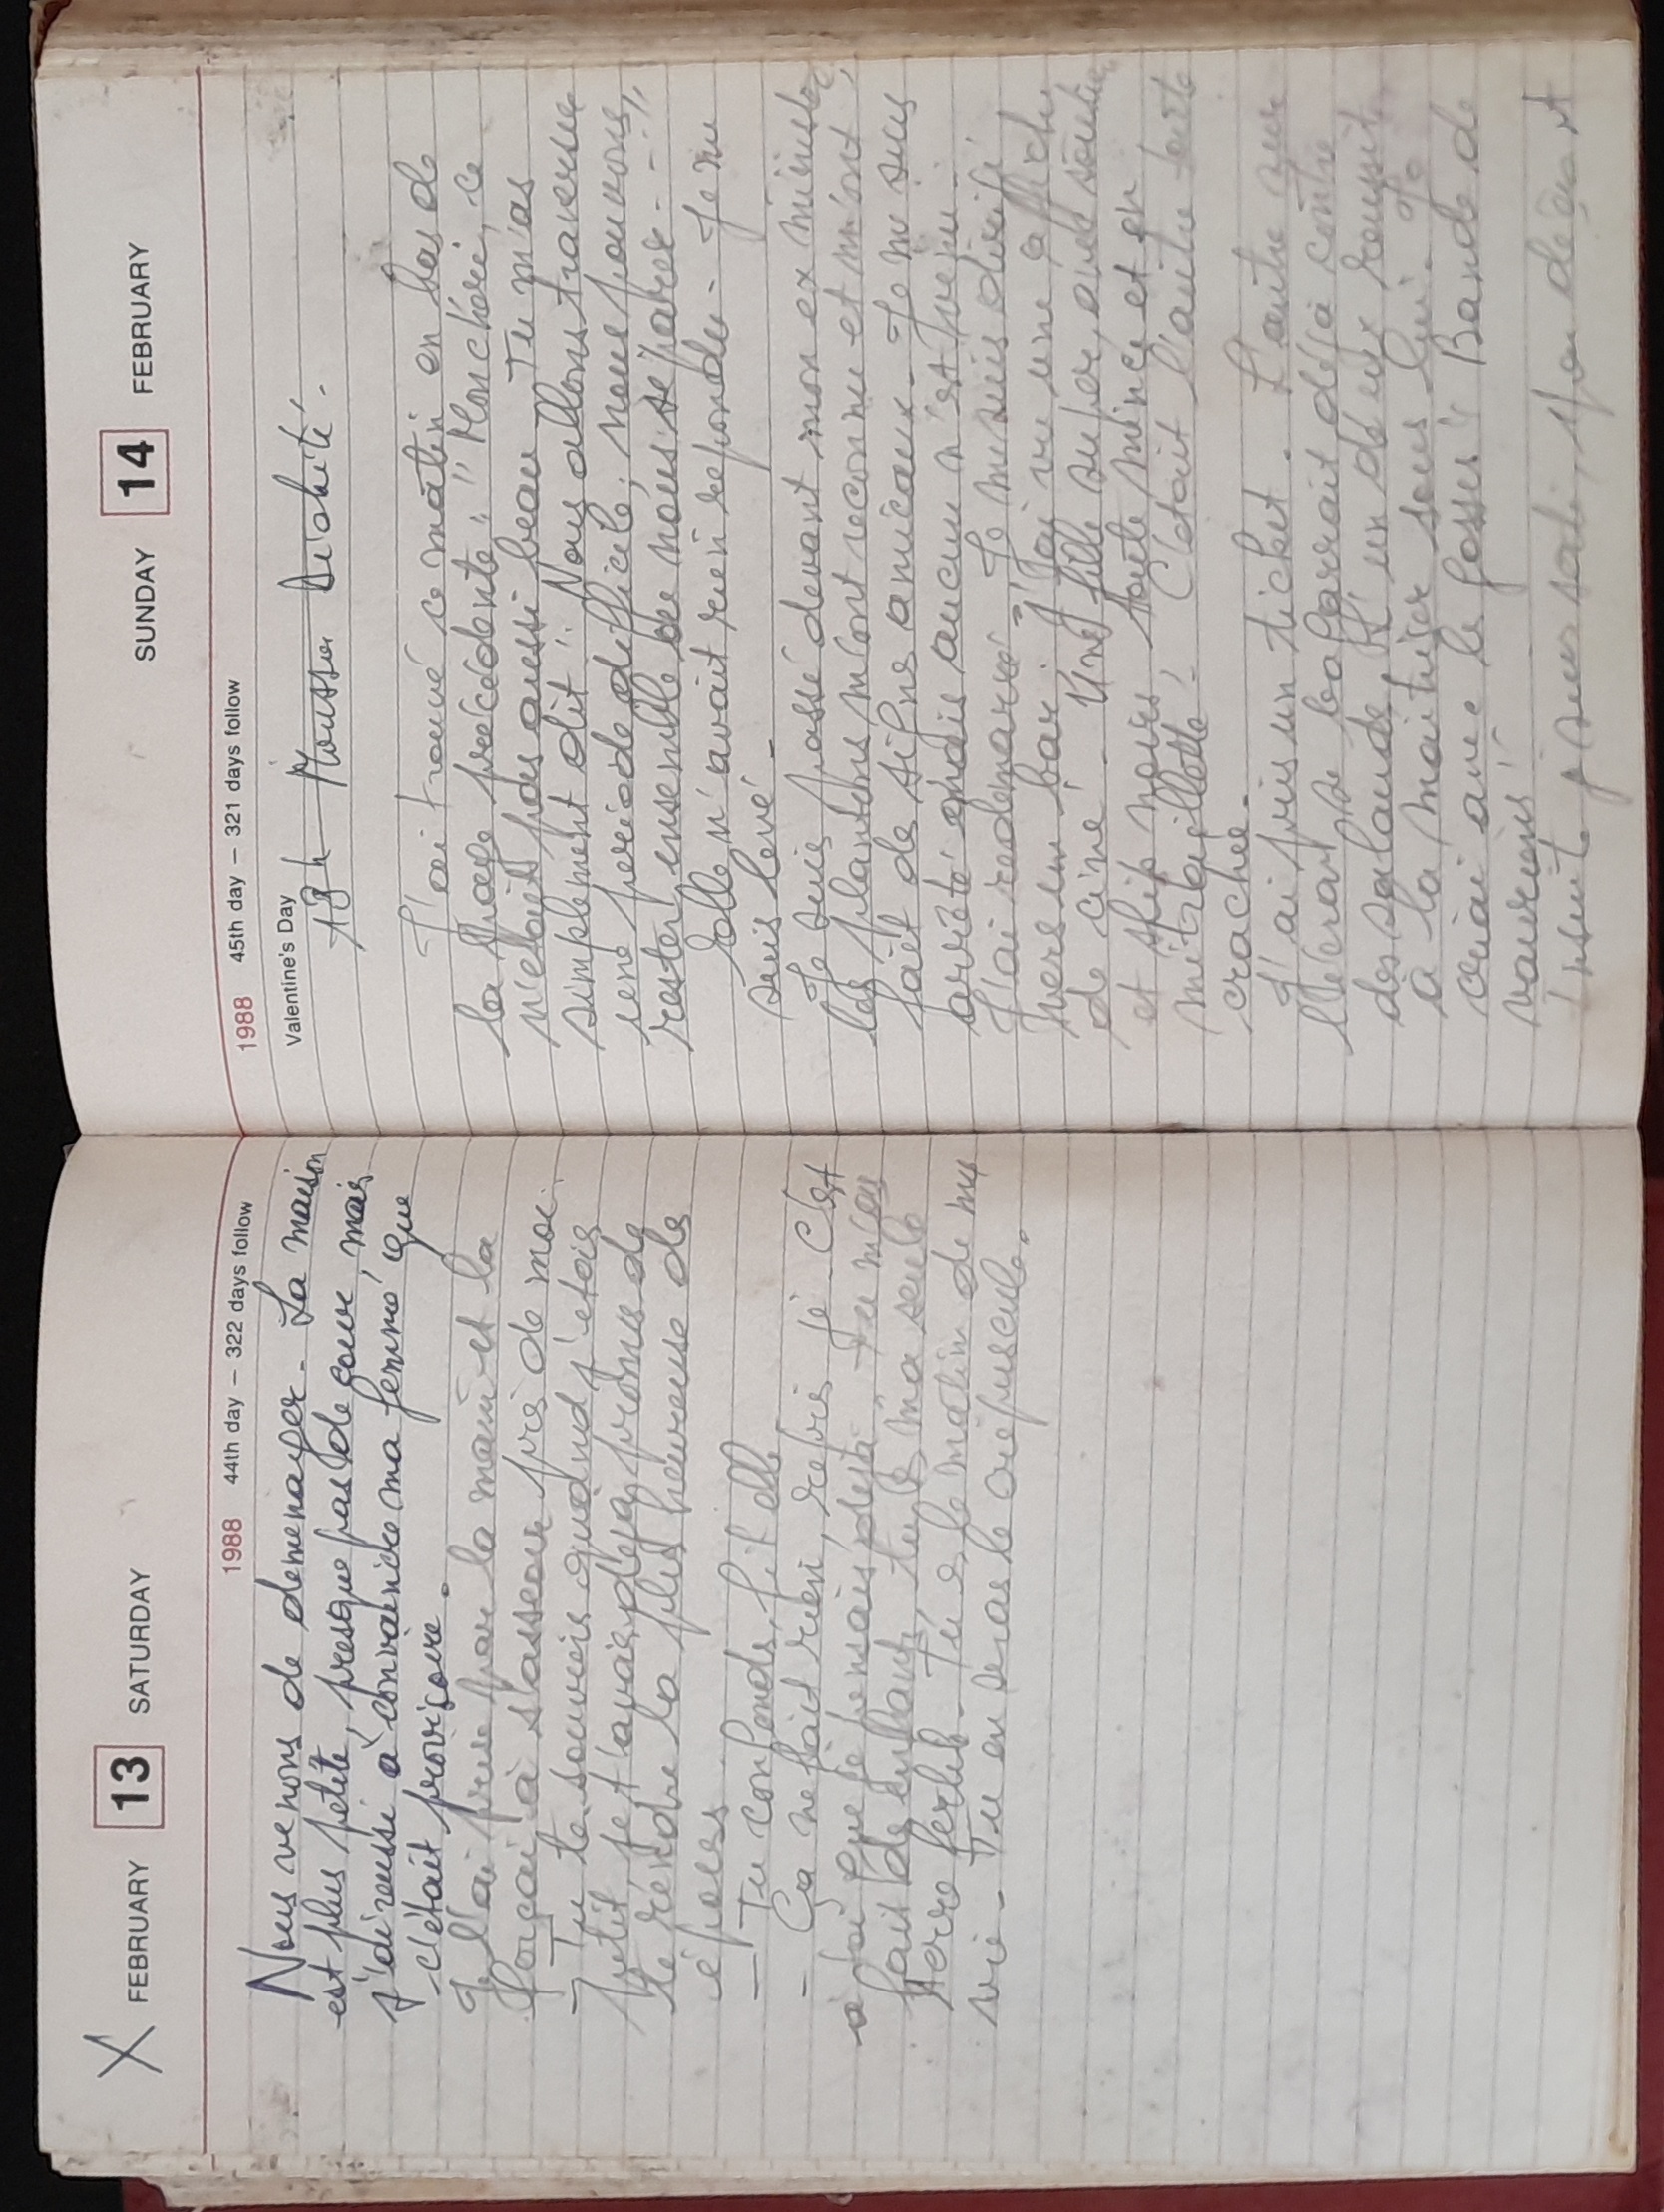 X FEBRUARY 13 SATURDAY
1988 44th day – 322 days follow
Nous venons de demenager. La maison
est plus petite, presque pas de cour, mais
j'ai reussi à convaincre ma femme que
c'était provisoire.
Je l'ai prise par la main et la
forçai à s'asseoir près de moi.
– Tu te souviens quand j'étais
petit je t'avais dejà promis de
te rendre la plus heureuse des
épouses
– Tu confonds, fit elle
– Ça ne fait rien, repris je. C'est
à toi que je pensais dejà. Tu m'as
fait de enfants, tu es ma seule
terre fertile. Tu es le matin de ma
vie. Tu en seras le crépuscule.
SUNDAY 14 FEBRUARY
1988 45th day – 321 days follow
Valentine's Day
18h Moussa
J'ai trouvé ce matin en bas de
la page précédente: "Mon chéri, ce
n'était pas aussi beau. Tu m'as
simplement dit: Nous allons traverser
une periode difficile; nous pouvons
rester ensemble ou nous séparer...",
elle n'avait rien repondu. Je me
suis levé.
Je suis passé devant mon ex ministère,
les plantons m'ont reconnu et m'ont
fait de signes amicaux. Je me suis
arrêté mais aucun n'est venu.
J'ai redemarré. Je me suis dirigé
vers un bar. J'ai vu une affiche
de ciné. Une fille super, avec soutien
et slip noirs, toute mince et en
mitraillette. C'était l'autre toute
crachée.
J'ai pris un ticket. L'autre sur
l'écran se bagarrait déjà contre
des salauds, l'un d'eux reussit
à la maitriser sous lui. Je
criai avec les gosses "Bande de
vauriens"
Ensuite je suis sorti, mon désir est